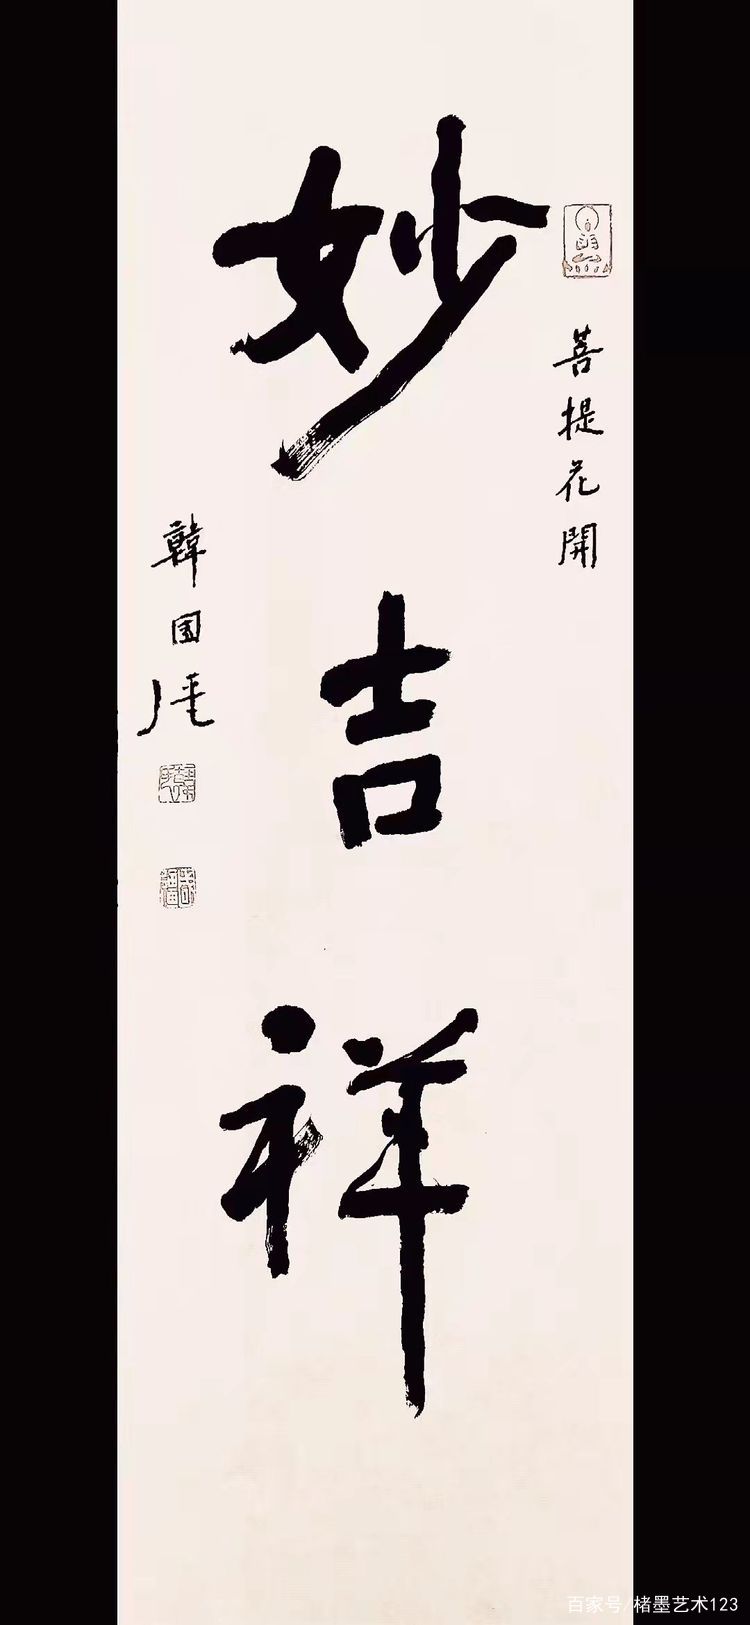 菩提花開
妙吉祥
韓国
百家号/楮墨艺术123